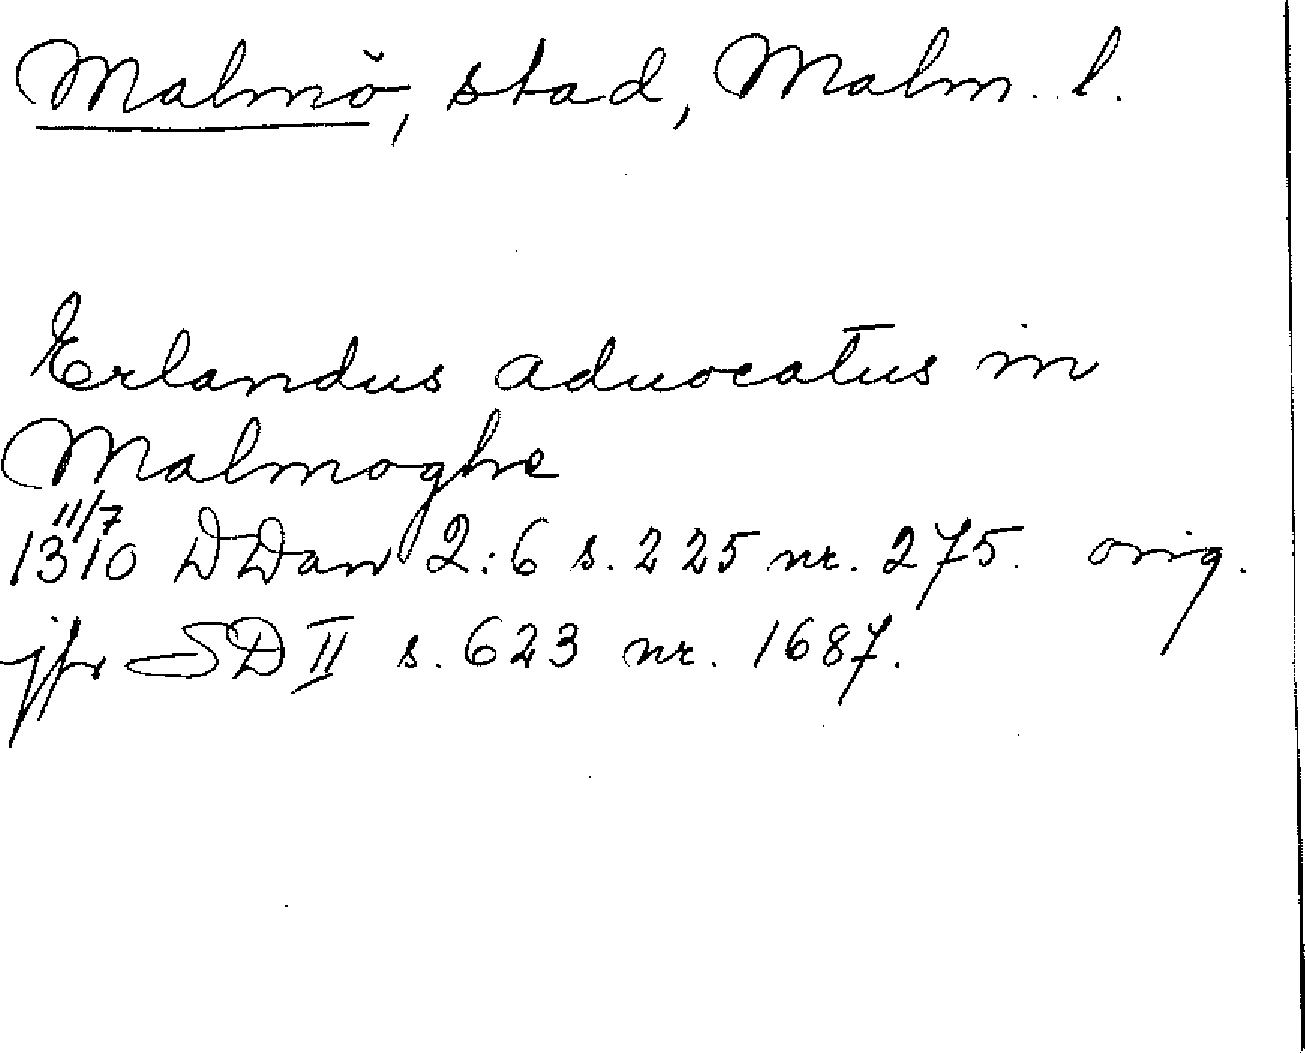 Malmö, stad, Malm. l.
Erlandus aduocatus in
Malmoghe
11/7
1310 DDan 2:6 s. 225 nr. 275. orig.
jfr SD II s. 623 nr. 1687.